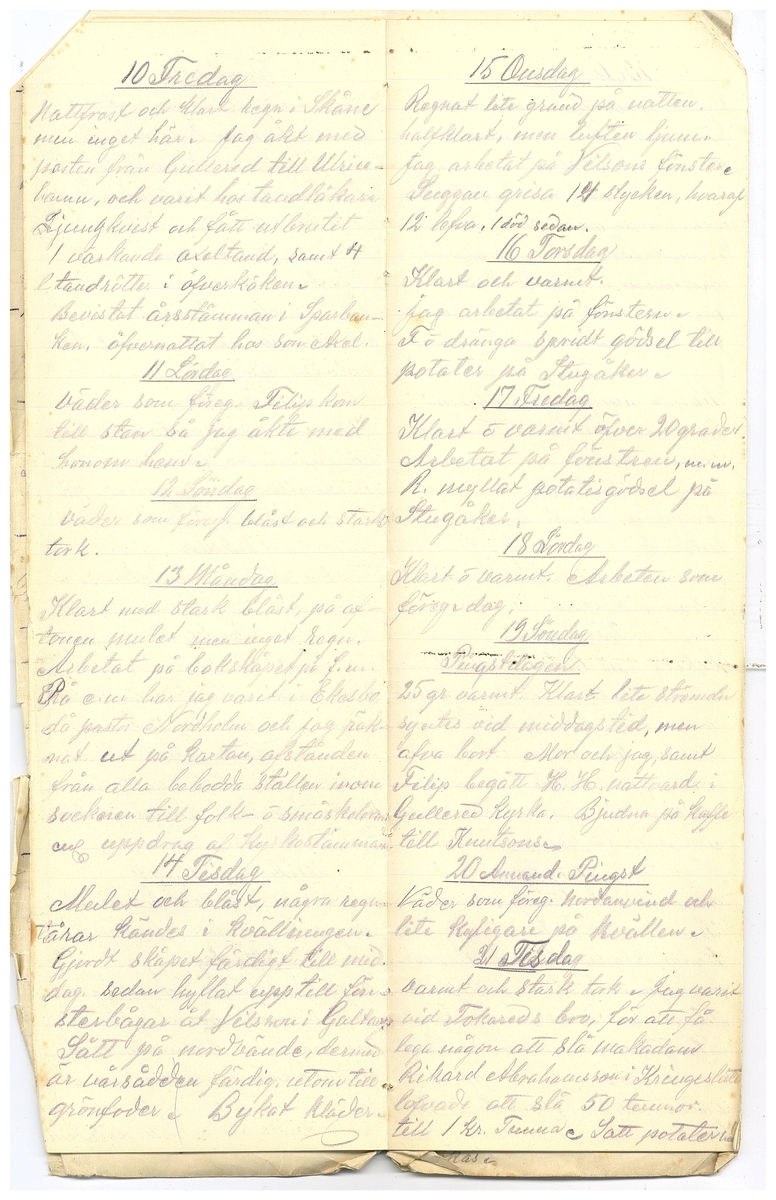 10 Fredag
Nattfrost och klart regn i Skåne
men inget här. Jag åkt med
posten från Gullered till Ulrice-
hamn, och varit hos tandläkarn
Ljungkvist och fått utbrutit
1 värkande axeltand, samt 4
tandrötter i öfverköken.
Bevistat årsstämman i Sparban-
ken, öfvernattat hos son Axel.
11 Lördag
Väder som föreg. Filip kom
till stan så jag åkte med
honom hem.
12 Söndag
Väder som föreg. blåst och stark
tork.
13 Måndag
Klart med stark blåst, på af-
tonen mulet men inget regn.
Arbetat på bokskåpet på f.m.
På e.m. har jag varit i Ekesbo
då pastor Nordholm och jag räk-
nat ut på kartan, afstånden
från alla bebodda ställen inom
socknen till folk- o småskolorna
uppdrag af kyrkostämman
14 Tisdag
Mulet och blåst, några regn-
tårar kändes i kvällningen.
Gjordt skåpet färdigt till mid-
dag. sedan hyflat upp till fön-
sterbågar åt Nilsson i Galtarp
Sått på nordvände, dermed
är vårsådden färdig. utom till
grönfoder. Bykat kläder.
15 Onsdag
Regnat lite grand på natten.
halfklart, men luften ljum.
Jag arbetat på Nilsons fönster.
Suggan grisa 14 stycken, hvaraf
12 lefva, 1 död sedan.
16 Torsdag
Klart och varmt.
Jag arbetat på fönstern.
F o dränga spridt gödsel till
potater på Stugåker.
17 Fredag
Klart o varmt öfver 20 grader.
Arbetat på fönstren, m.m.
R. myllat potatisgödsel på
Stugåker.
18 Lördag
Klart o varmt. Arbeten som
föreg. dag.
19 Söndag
Pingstdagen
25 gr. varmt. Klart lite strömoln
syntes vid middagstid, men
bort Mor och jag, samt
Filip begått H. H. nattvard i
Gullered Kyrka. Bjudna på kaffe
till Knutsons.
20 Annand. Pingst
Väder som föreg. nordanvind och
lite kyligare på kvällen.
21 Tisdag
Varmt och stark tork. Jag varit
vid Tokareds bro, för att få
lega någon att slå makadam
Rikard Abrahamsson i Kringeslätt
lofvade att slå 50 tunnor.
till 1 Kr. Tunna. Satt potater